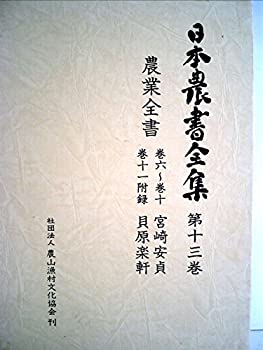 日本農書全集 第十三巻
農業全書
巻六～巻十 宮崎安貞
巻十一附録 貝原楽軒
社団法人 農山漁村文化協会刊